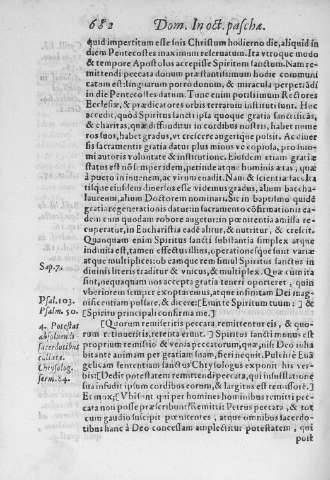 682 Dom. In oct. paschæ.
quid impertitum esse inis Christum hodierno die, aliquid in
diem Pentecostes maximum reservatum. Ita vtroque modo
& tempore Apostolos accepisse Spiritum sanctum. Nam re-
mittendi peccata donum præstantissimum hodie communi
catum est: linguarum porro donum, & miracula perpetrādi
in diē Pentecostes datum. Tunc enim potissimum Rectores
Ecclesiæ, & prædicatores orbis terrarum instituti sunt. Hoc
accedit, quòd Spiritus sancti ipsa quoque gratia sanctificās,
& charitas, quæ diffunditur in cordibus nostris, habet nume
ros suos, habet gradus, vt crescere augerique possit. Ac vinie-
sis sacramentis gratia datur plus minus ve copiosa, pro sum-
mi autoris voluntate & institutione. Eiusdem etiam gratiæ
status est nō semper idem, perinde atque hominis ætas, quæ
à puero in iuuenem, ac virum euadit. Nam & scientiæ facul-
tatisque eiusdem diuersos esse videmus gradus, alium baccha-
laureum, alium Doctorem nominari. Sic in baptismo quidē
gratia regenerationis datur: in sacramento cōfirmationis ea-
dem cum quodam robore augetur: in pœnitentia amissa re-
cuperatur, in Eucharistia eadē alitur, & nutritur, & crescit.
Quanquam enim Spiritus sancti substantia simplex atque
indiuisa est, tamen effectus illius, operationésque sunt variæ
atque multiplices: ob eamque rem simul Spiritus sanctus in
diuinis literis traditur & vnicus, & multiplex. Quæ cùm ita
sint, nequaquam non accepta gratia teneri oporteret, quin
vberiorem semper expectaremus, atque in sinitam Dei mag-
nificentiam possare, & dicere: [Emitte Spiritum tuum:] &
[Spiritu principali confirma me.]
[Quorum remiseritis peccata, remittentur eis, & quo-
rum retinueritis, retenta erunt.] Spiritus sancti munus est
proprium remissio & venia peccatorum, quæ, nisi Deo inha
bitante animam per gratiam suam, fieri nequit. Pulchrè Euā
gelicam sententiam sanctus Chrysologus exponit his ver-
bis: [Dedit potestatem remittendi peccata, qui insufflatione
sua infudit ipsum cordibus eorum, & largitus est remissorē.]
Et mox: [Vbi sunt qui per homines hominibus remitti pec-
cata non posse præscribunt? Remittit Petrus peccata, & tot
cum gaudio suscipit pœnitentes, atque omnibus sacerdo-
tibus hanc à Deo concessam amplectitur potestatem, qui
post
Sap. 7.
Psal. 103.
Psalm. 50.
4. Potestas
absoluendi
sacerdotibus
collata.
Chrysolog.
serm. 84.